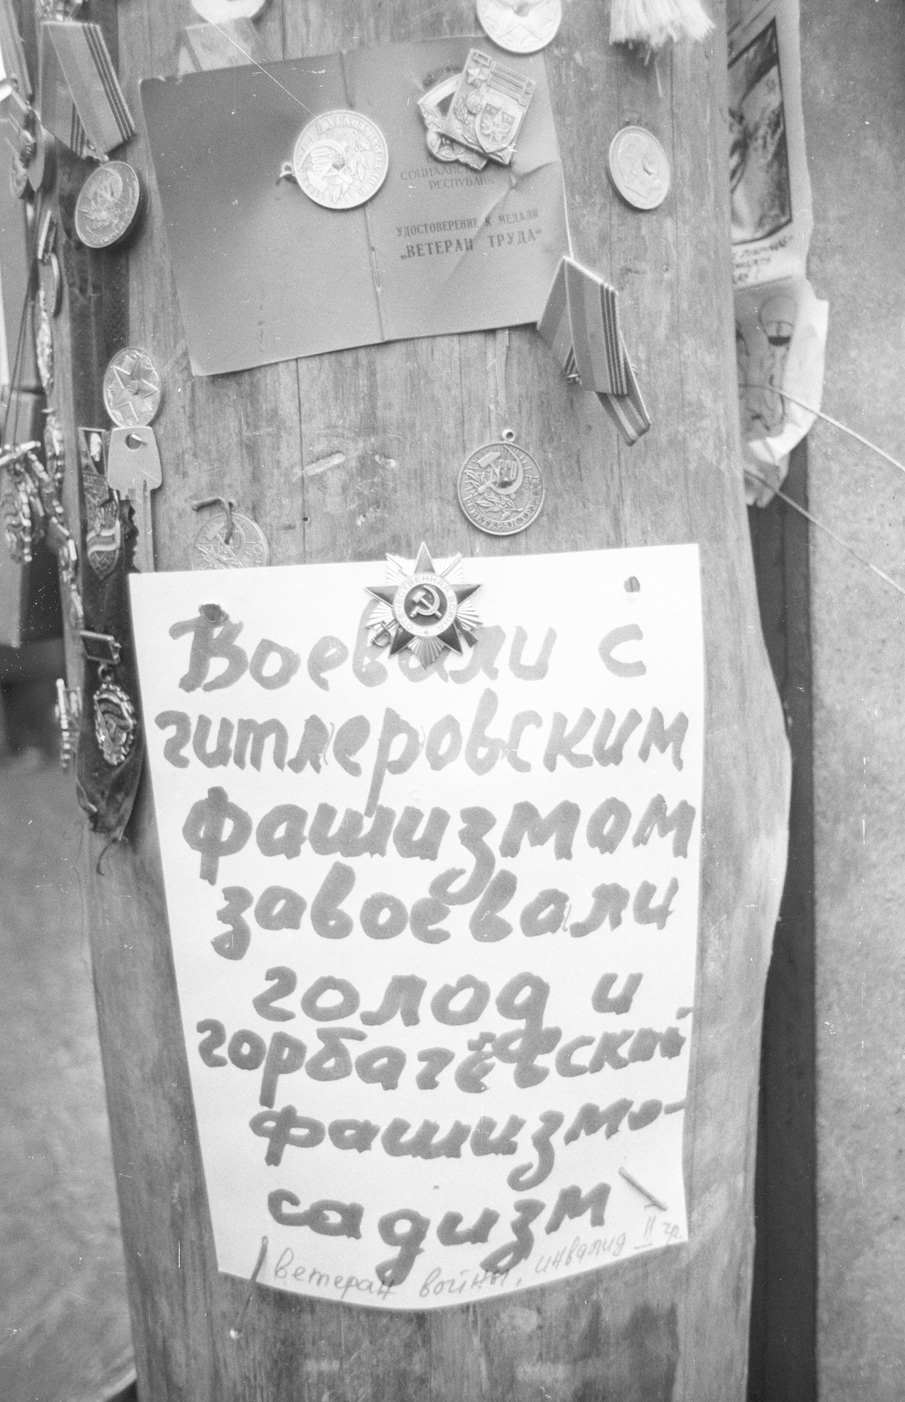 СОЦИАЛИС
РЕСПУБЛИК
УДОСТОВЕРЕНИЕ К МЕДАЛИ
„ВЕТЕРАН ТРУДА“
Воевали с
гитлеровским
фашизмом
завоевали
голод и
горбачёвский
фашизмо-
садизм
ветеран войны, инвалид II гр.